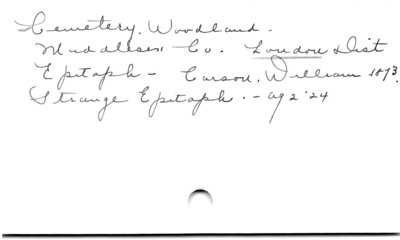 Cemetery. Woodland.
Middlesex Co. London Dist
Epitaph - Carson, William 1873.
Strange Epitaph. - Ag 2 '24